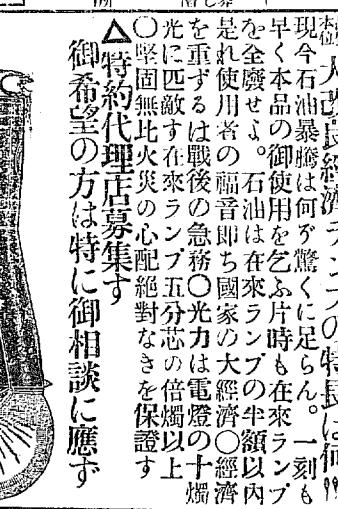 大改良經濟ランプの特長は何
現今石油暴騰は何ぞ驚くに足らん。一刻も
早く本品の御使用を乞ふ片時も在來ランプ
を全廢せよ。石油は在來ランプの半額以內
是れ使用者の福音卽ち國家の大經濟〇經濟
を重ずるは戰後の急務〇光力は電燈の十燭
光に匹敵す在來ランプ五分芯の倍燭以上
〇堅固無比火災の心配絕對なきを保證す
△特約代理店募集す
御希望の方は特に御相談に應ず